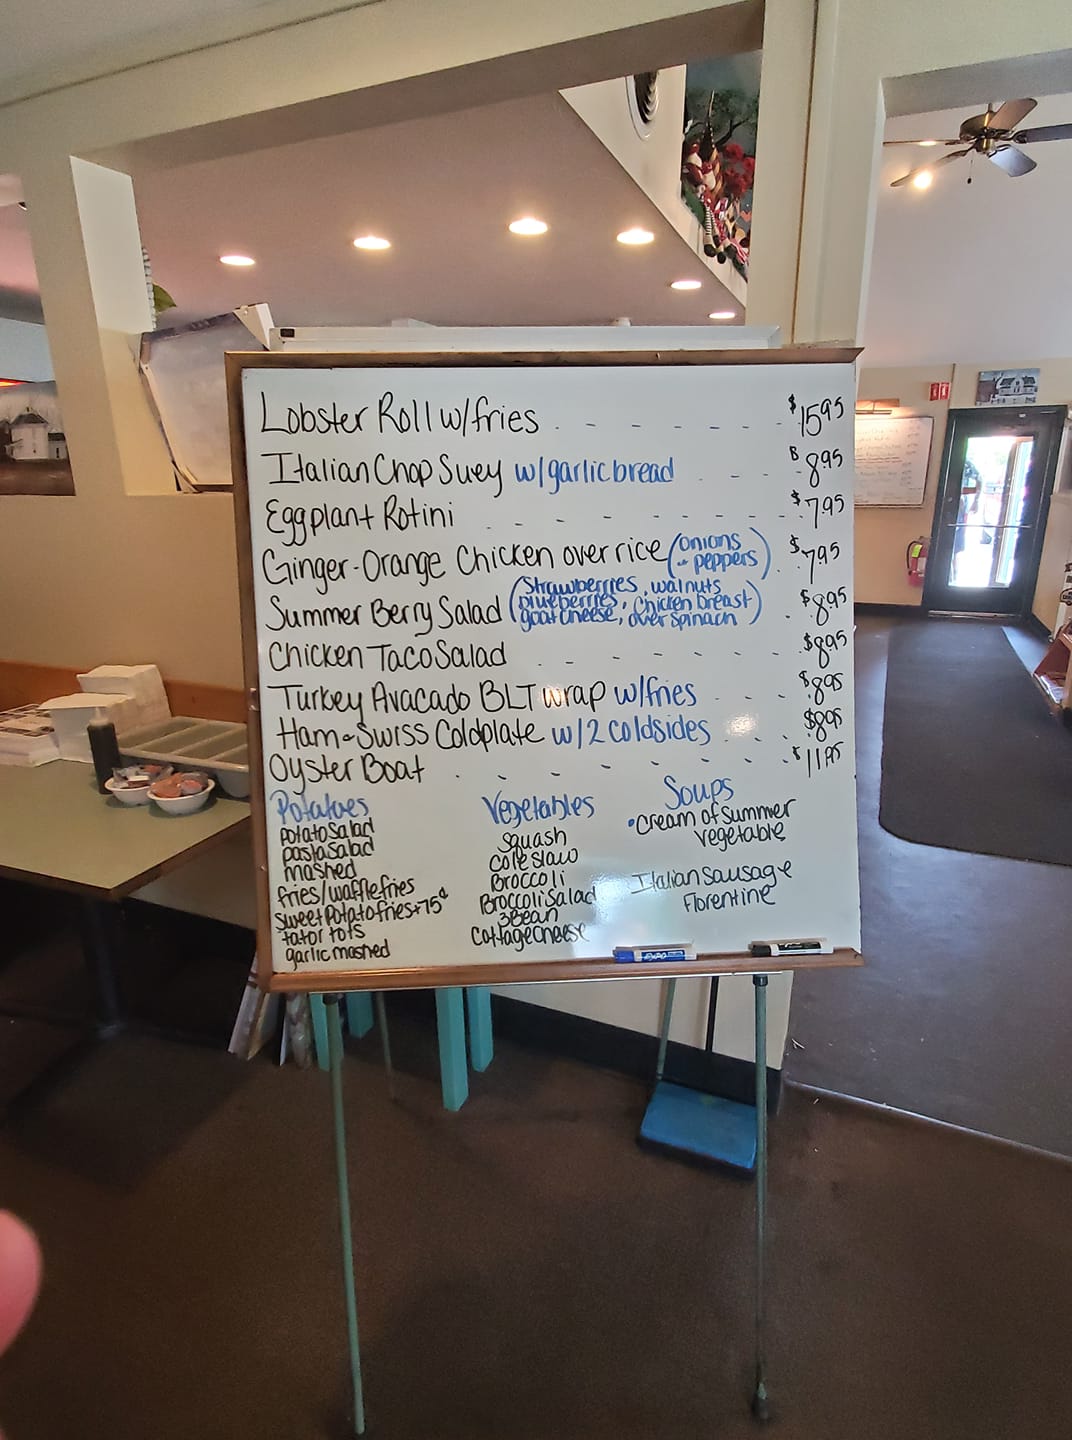 Lobster Roll w/fries $15.95
Italian Chop Suey w/garlic bread $8.95
Eggplant Rotini $7.95
Ginger-Orange Chicken over rice (onions & peppers) $7.95
Summer Berry Salad (Strawberries, walnuts
blueberries, Chicken breast
goat cheese, over spinach) $8.95
Chicken Taco Salad $8.95
Turkey Avacado BLT wrap w/fries $8.95
Ham & Swiss Coldplate w/2 coldsides $8.95
Oyster Boat $11.95
Potatoes
potato salad
pasta salad
mashed
fries/waffle fries
sweet potato fries +75¢
tator tots
garlic mashed
Vegetables
squash
cole slaw
Broccoli
Broccoli Salad
3 Bean
Cottage cheese
Soups
•Cream of Summer
vegetable
Italian Sausage
florentine
EXPO